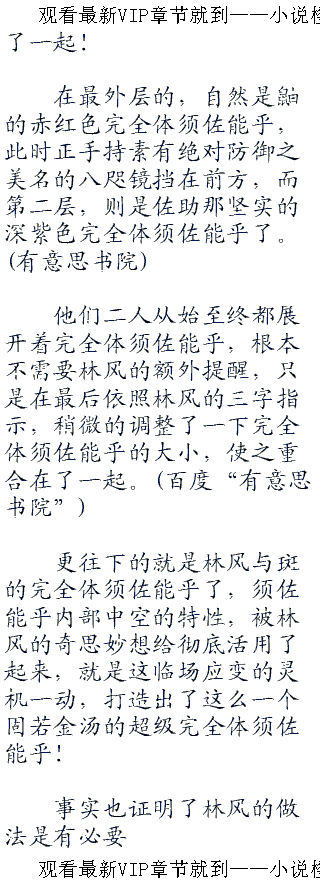 观看最新VIP章节就到——小说
了一起！
在最外层的，自然是鼬
的赤红色完全体须佐能乎，
此时正手持素有绝对防御之
美名的八咫镜挡在前方，而
第二层，则是佐助那坚实的
深紫色完全体须佐能乎了。
(有意思书院)
他们二人从始至终都展
开着完全体须佐能乎，根本
不需要林风的额外提醒，只
是在最后依照林风的三字指
示，稍微的调整了一下完全
体须佐能乎的大小，使之重
合在了一起。(百度“有意思
书院”)
更往下的就是林风与斑
的完全体须佐能乎了，须佐
能乎内部中空的特性，被林
风的奇思妙想给彻底活用了
起来，就是这临场应变的灵
机一动，打造出了这么一个
固若金汤的超级完全体须佐
能乎！
事实也证明了林风的做
法是有必要
观看最新VIP章节就到——小说